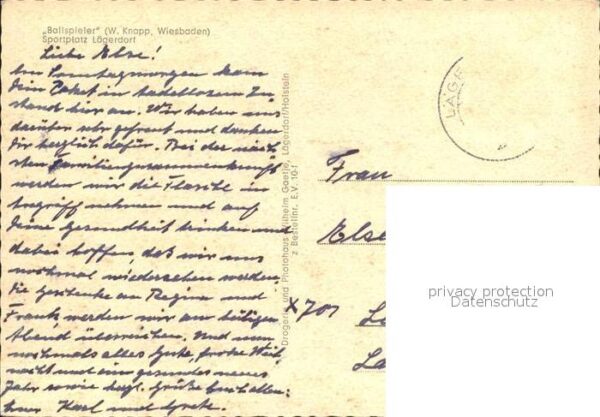 „Ballspieler" (W. Knapp, Wiesbaden)
Sportplatz Lägerdorf
Liebe Else!
Am Sonntagmorgen kam
Dein Paket in tadellosem Zu-
stand hier an. Wir haben uns
darüber sehr gefreut und danken
Dir herzlich dafür. Bei der näch-
sten Familienzusammenkunft
werden wir die Flasche in
Angriff nehmen und auf
Deine Gesundheit trinken und
dabei hoffen, daß wir uns
nochmal wiedersehen werden.
Die Geschenke an Regina und
Frank werden wir am heiligen
Abend überreichen. Und nun
nochmals alles Gute, frohe Weih-
nacht und ein gesundes neues
Jahr sowie herzl. Grüße
Karl und Grete.
Drogerie und Photohaus Wilhelm Gaetje, Lägerdorf/Holstein
z Bestellnr. E.V. 10-1
LÄGE
Frau
Else
X701
La
privacy protection
Datenschutz